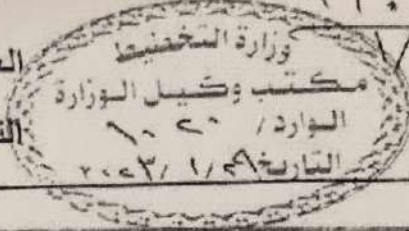 وزارة التخطيط
مكتب وكيل الوزارة
الوارد /
التاريخ ٢٩ / ١ / ٢٠٢٣